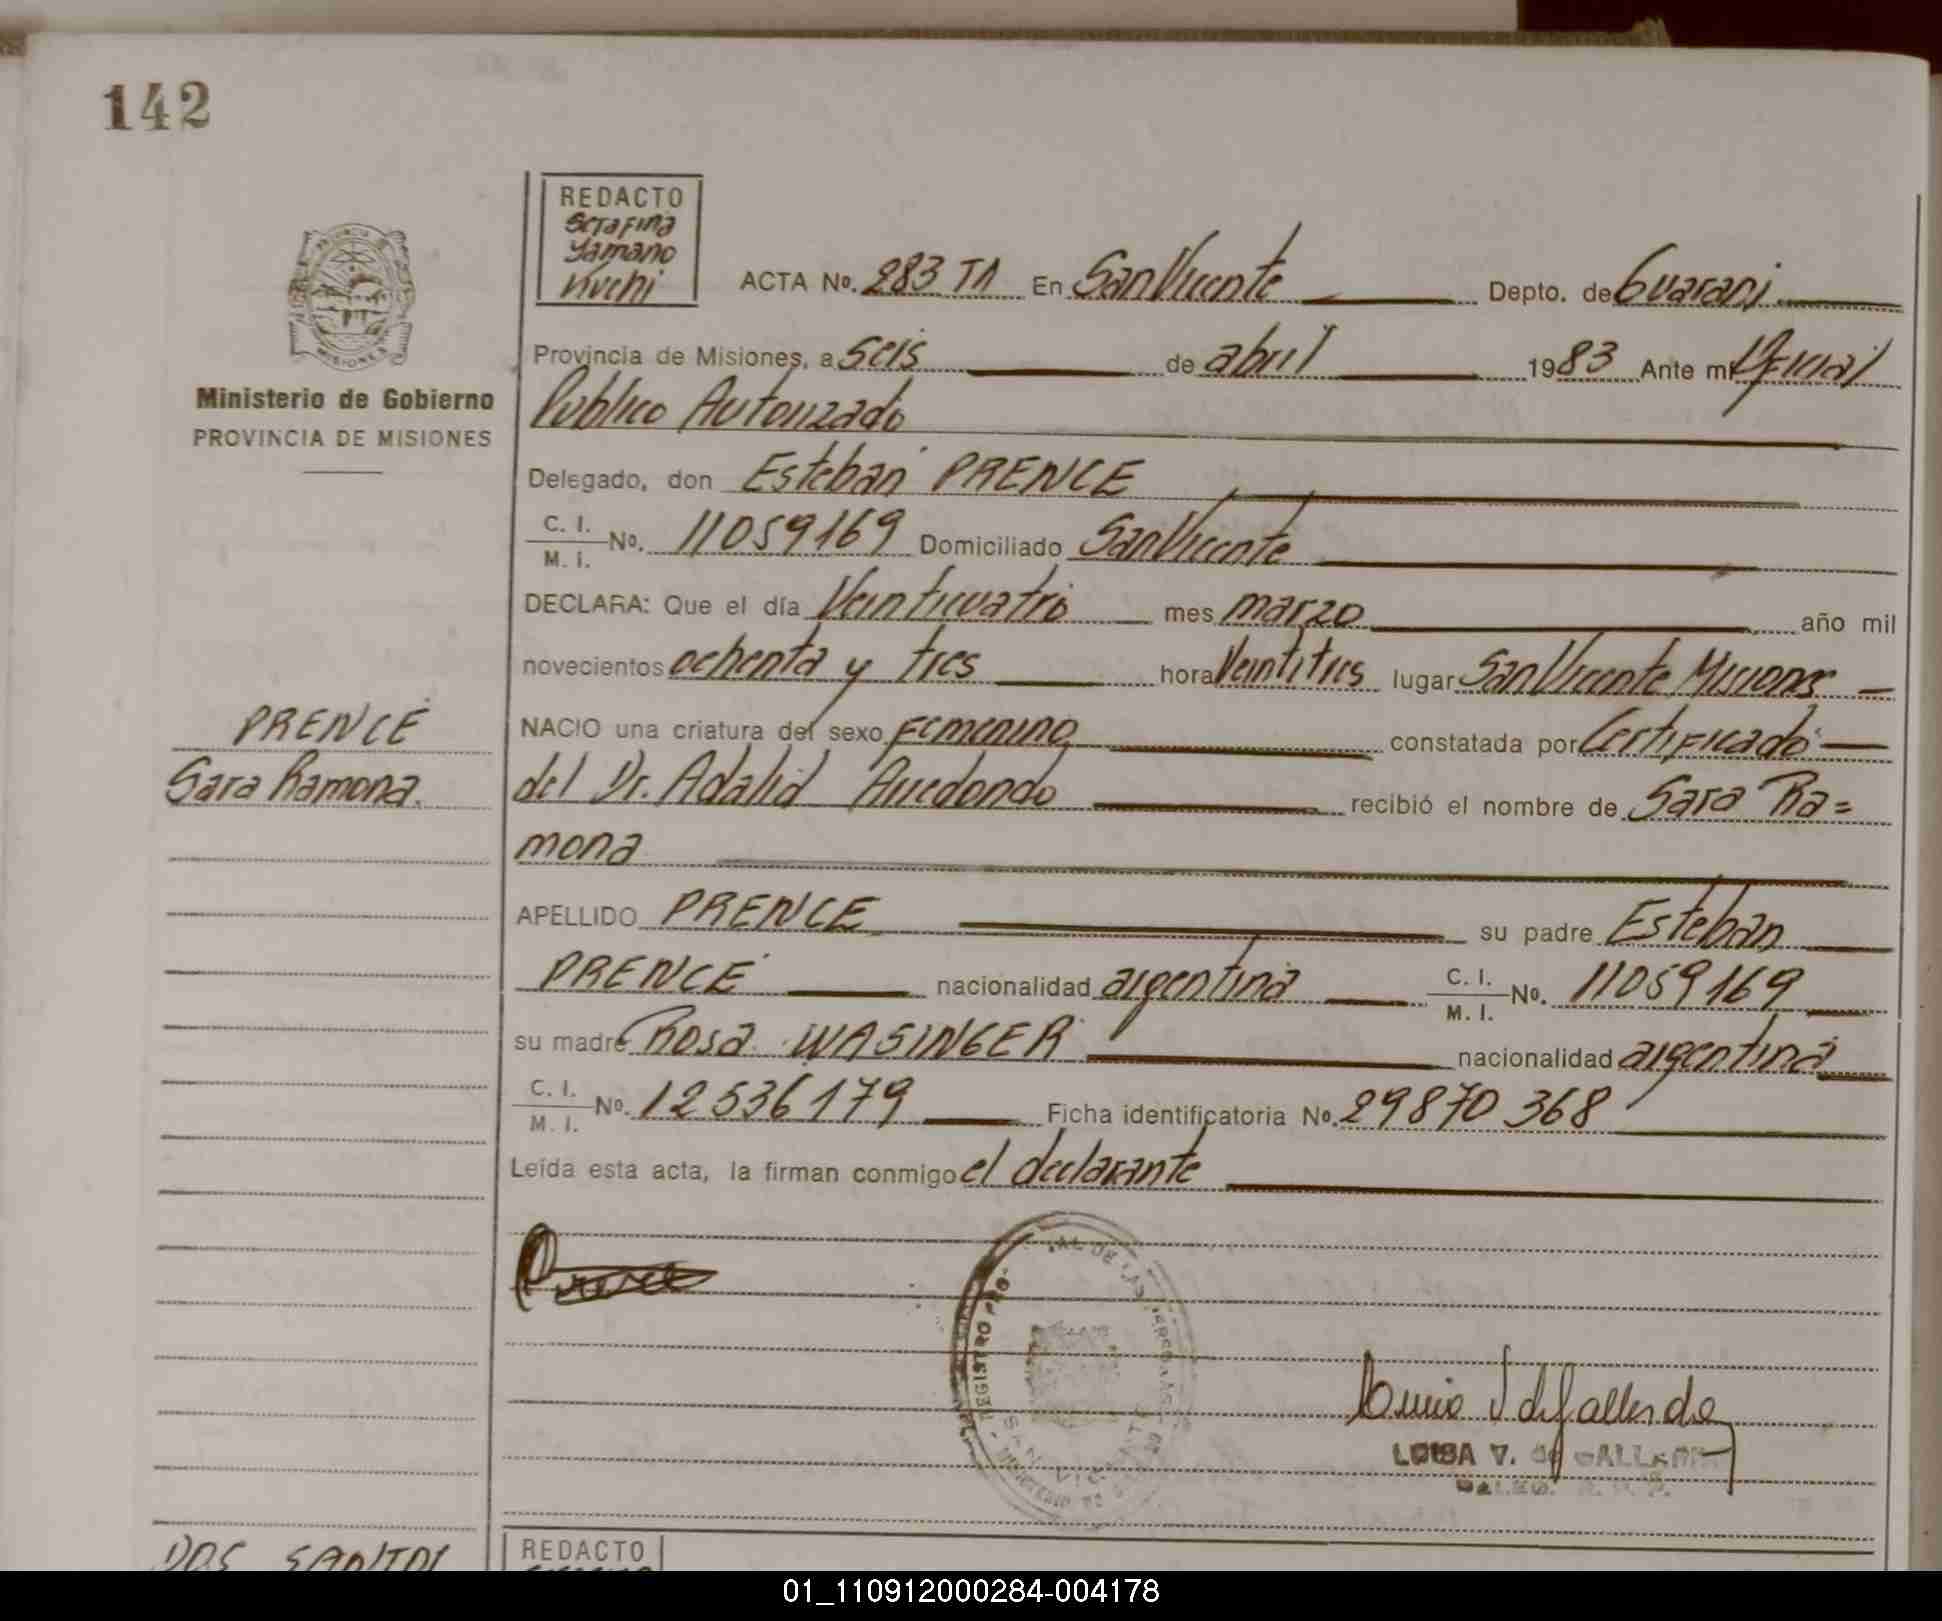 142
REDACTO
Serafina
Yamano
Kuchi
PROVINCIA DE
MISIONES
ACTA No. 283 TA En San Vicente Depto. de Guarani
Provincia de Misiones, a seis de abril 1983 Ante mi Oficial
Publico Autorizado
Ministerio de Gobierno
PROVINCIA DE MISIONES
Delegado, don Esteban PRENCE
C. I.
M. I. No. 11059169 Domiciliado San Vicente
DECLARA: Que el día Veinticuatro mes marzo año mil
novecientos ochenta y tres hora Veintitres lugar San Vicente Misiones
NACIO una criatura del sexo Femenino constatada por Certificado
del Dr. Adalid Arredondo recibió el nombre de Sara Ra=
mona
PRENCE
Sara Ramona.
APELLIDO PRENCE su padre Esteban
PRENCE nacionalidad argentina C. I.
M. I. No. 11059169
su madre Rosa WASINGER nacionalidad argentina
C. I.
M. I. No. 12536179 Ficha identificatoria No. 29870368
Leída esta acta, la firman conmigo el declarante
Prence
REGISTRO PRO
AL DE LAS PERSONAS
SAN VICENTE
LUISA V. de GALLARDO
DOS SANTOS
REDACTO
01_110912000284-004178